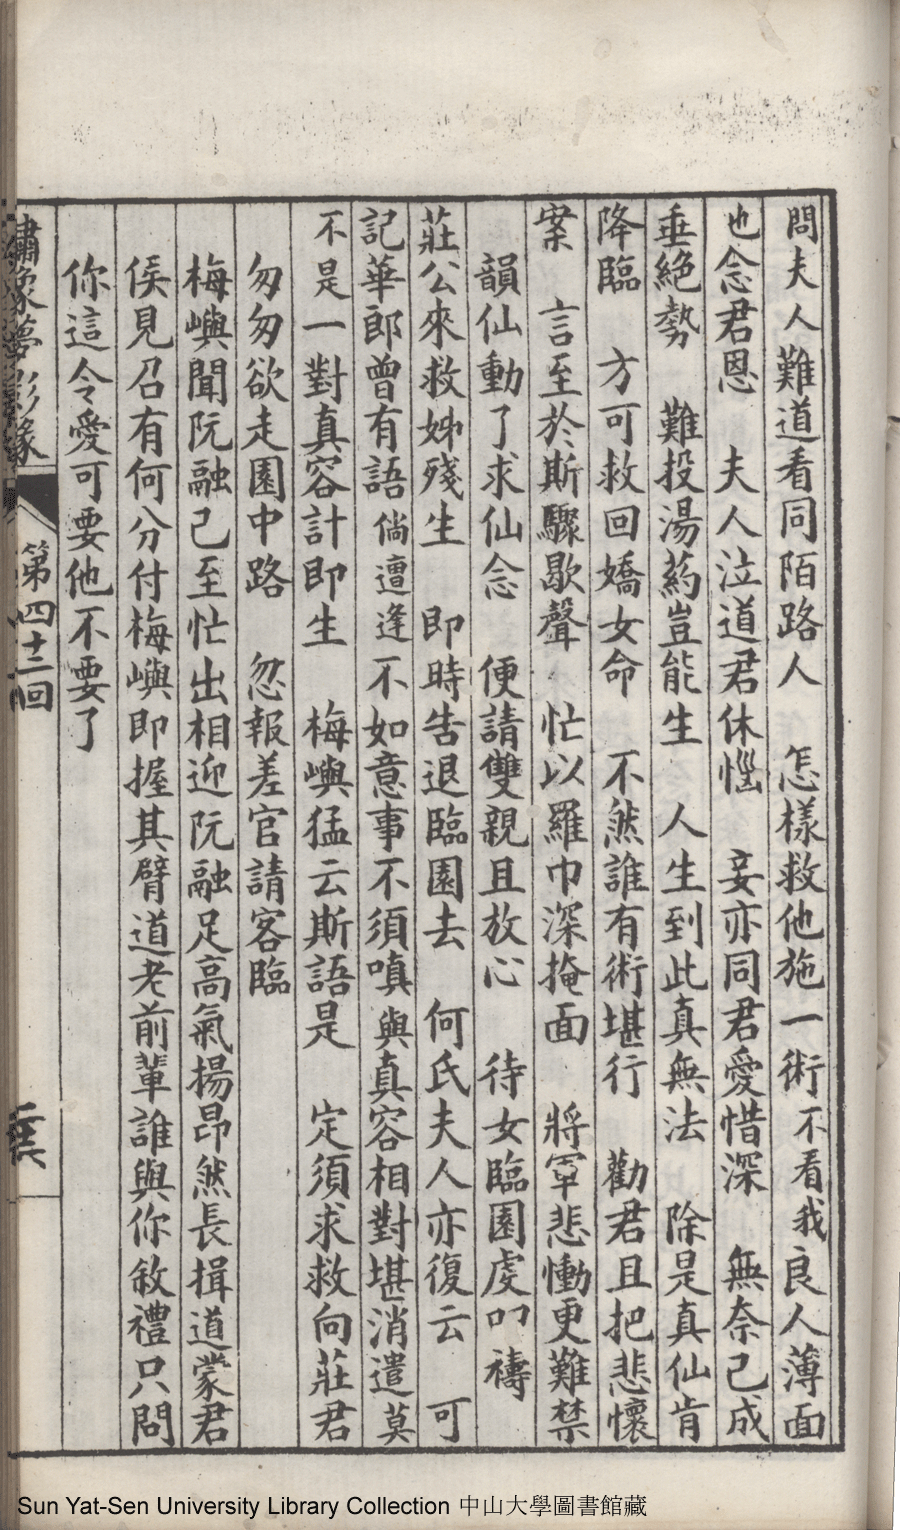 問夫人難道看同陌路人　怎樣救他施一術不看我良人薄面
也念君恩　夫人泣道君休惱　妾亦同君愛惜深　無奈己成
垂絕勢　難投湯葯豈能生　人生到此真無法　除是真仙肯
降臨　方可救回嬌女命　不然誰有術堪行　勸君且把悲懷
案　言至於斯驟歇聲　忙以羅巾深掩面　將軍悲慟更難禁
韻仙動了求仙念　便請雙親且放心　待女臨園虔叩禱
莊公來救姊殘生　即時告退臨園去　何氏夫人亦復云　可
記華郎曾有語倘遭逢不如意事不須嗔與真容相對堪消遣莫
不是一對真容計即生　梅嶼猛云斯語是　定須求救向莊君
匆匆欲走園中路　忽報差官請客臨
梅嶼聞阮融己至忙出相迎阮融足高氣揚昂然長揖道蒙君
侯見召有何分付梅嶼即握其臂道老前輩誰與你敘禮只問
你這令愛可要他不要了
繡像夢影緣　第四十二回
Sun Yat-Sen University Library Collection 中山大學圖書館藏